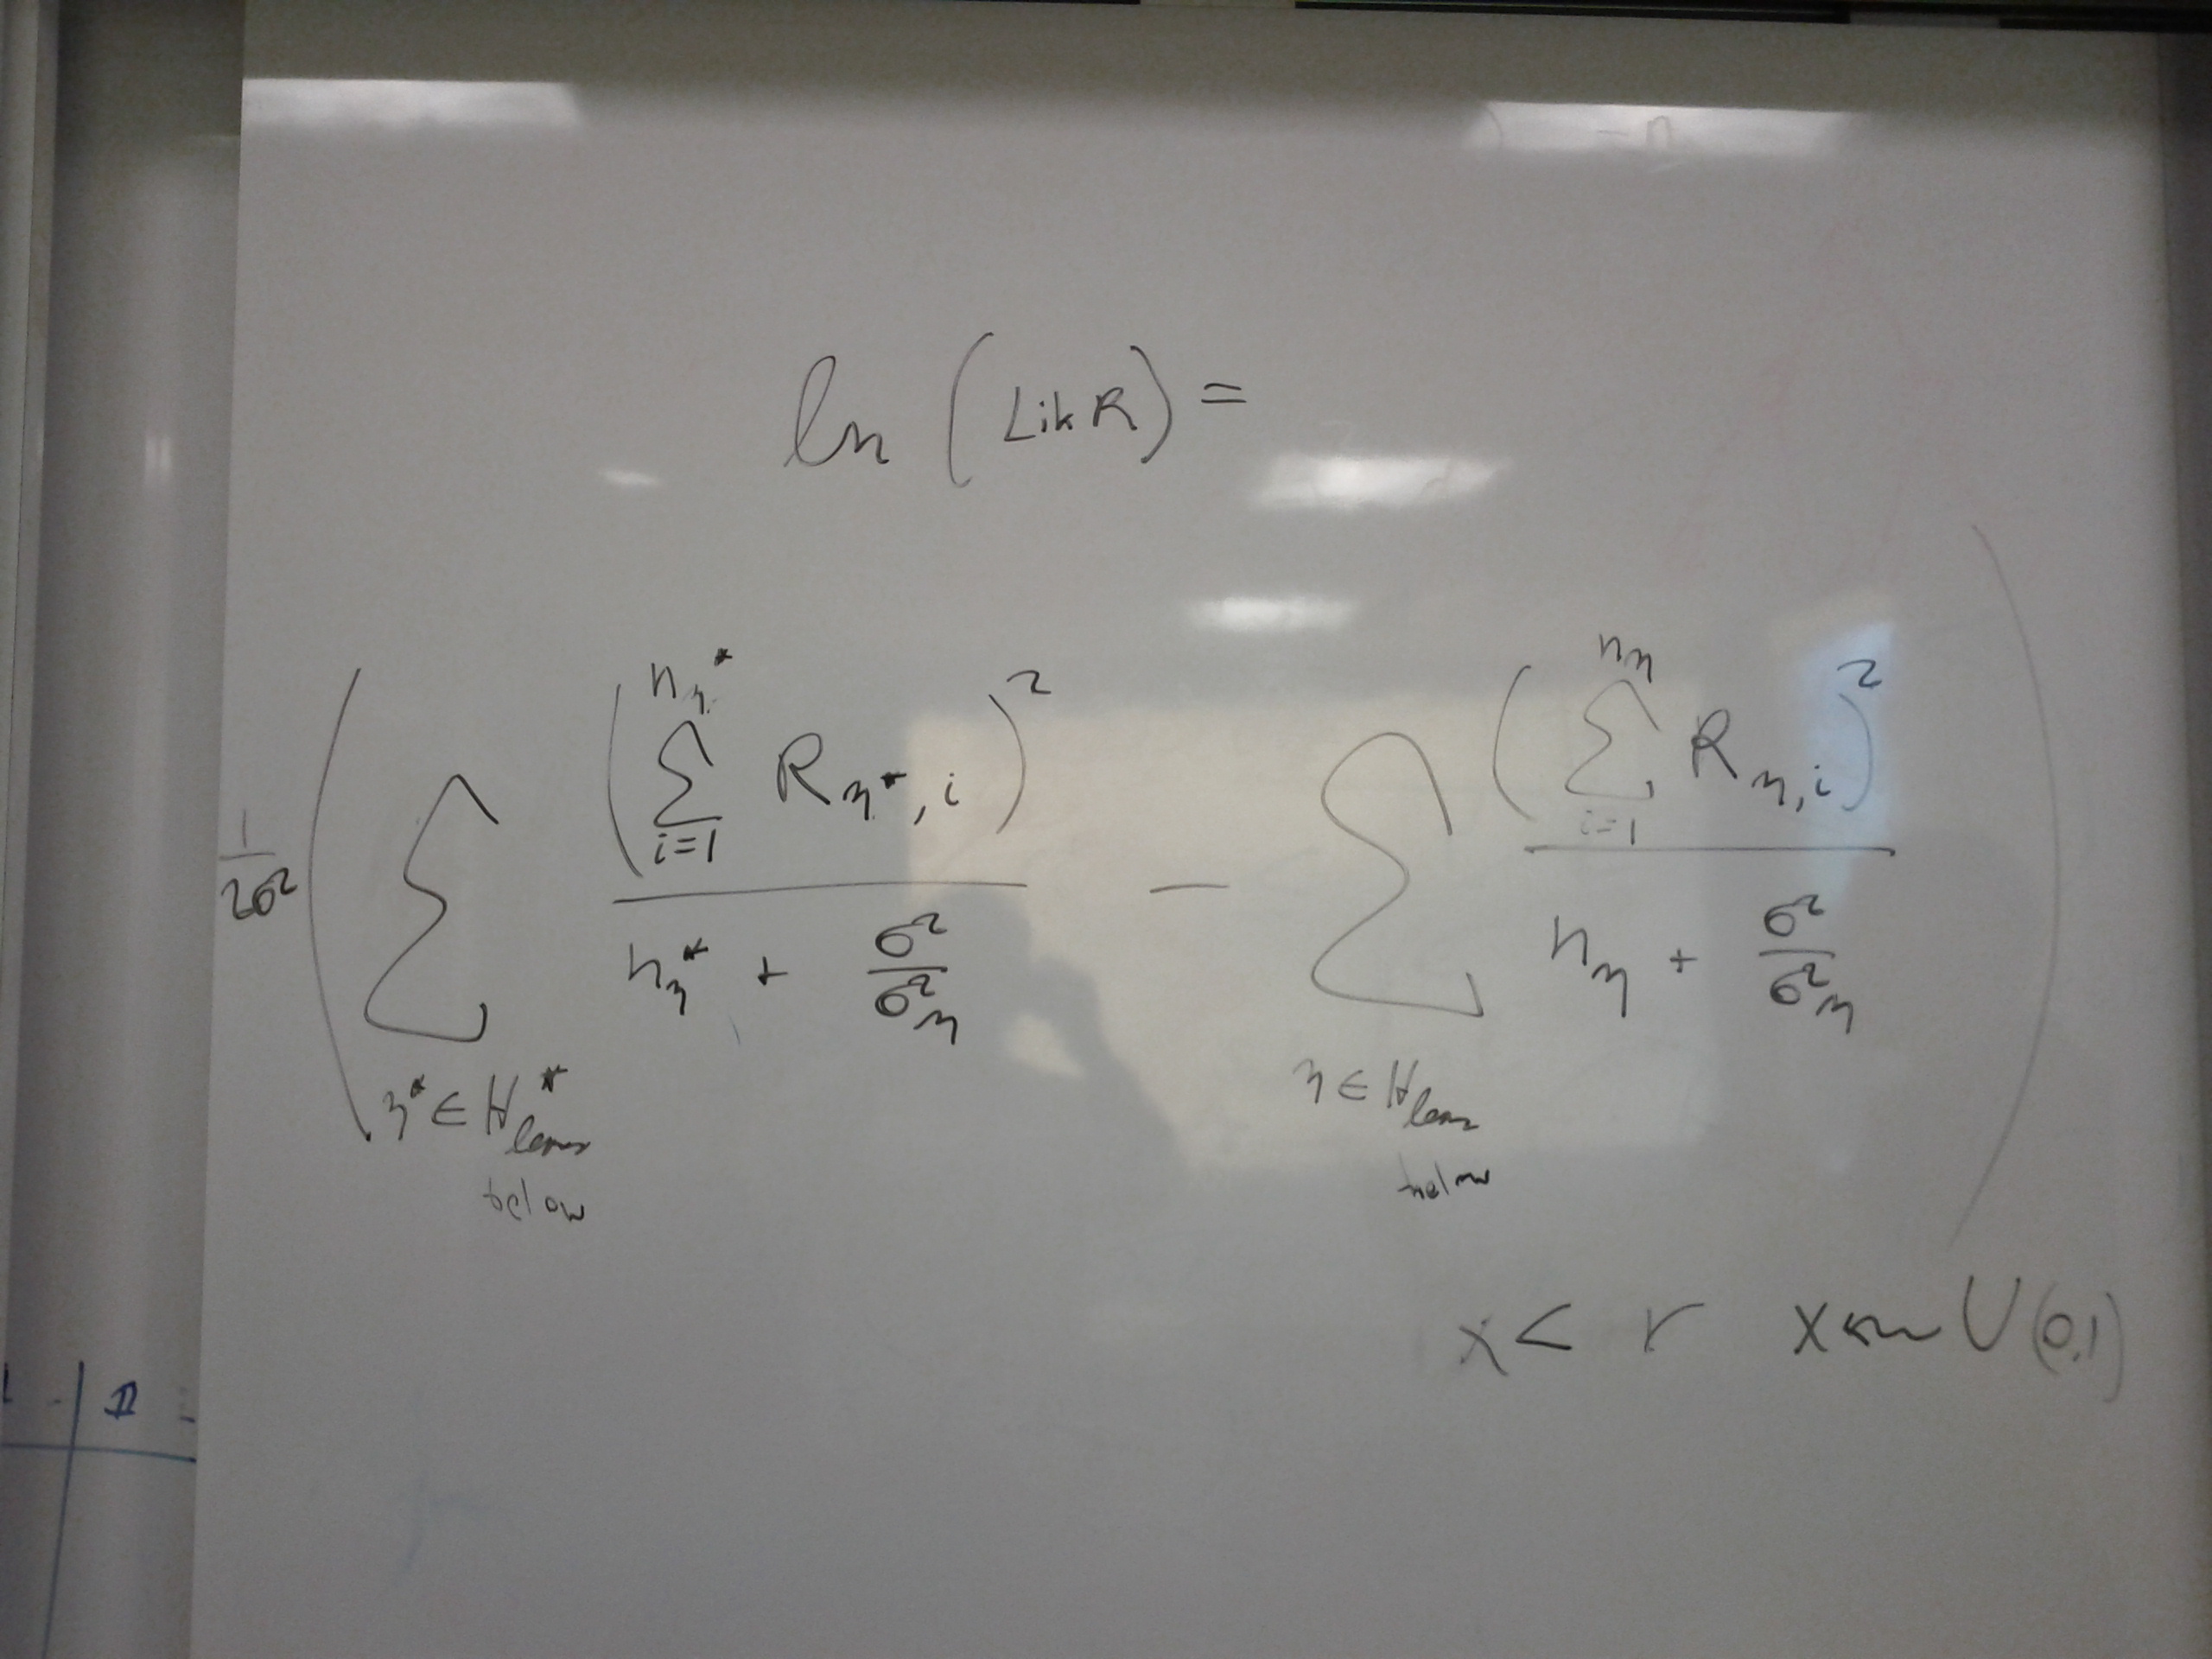 ln (LikR) =
1/2σ² ( Σ_{η*∈H*_{lens below}} (Σ_{i=1}^{n_η*} R_{η*,i})² / (n_η* + σ²/σ²_η) − Σ_{η∈H_{lens below}} (Σ_{i=1}^{n_η} R_{η,i})² / (n_η + σ²/σ²_η) )
x < r x ~ U(0,1)